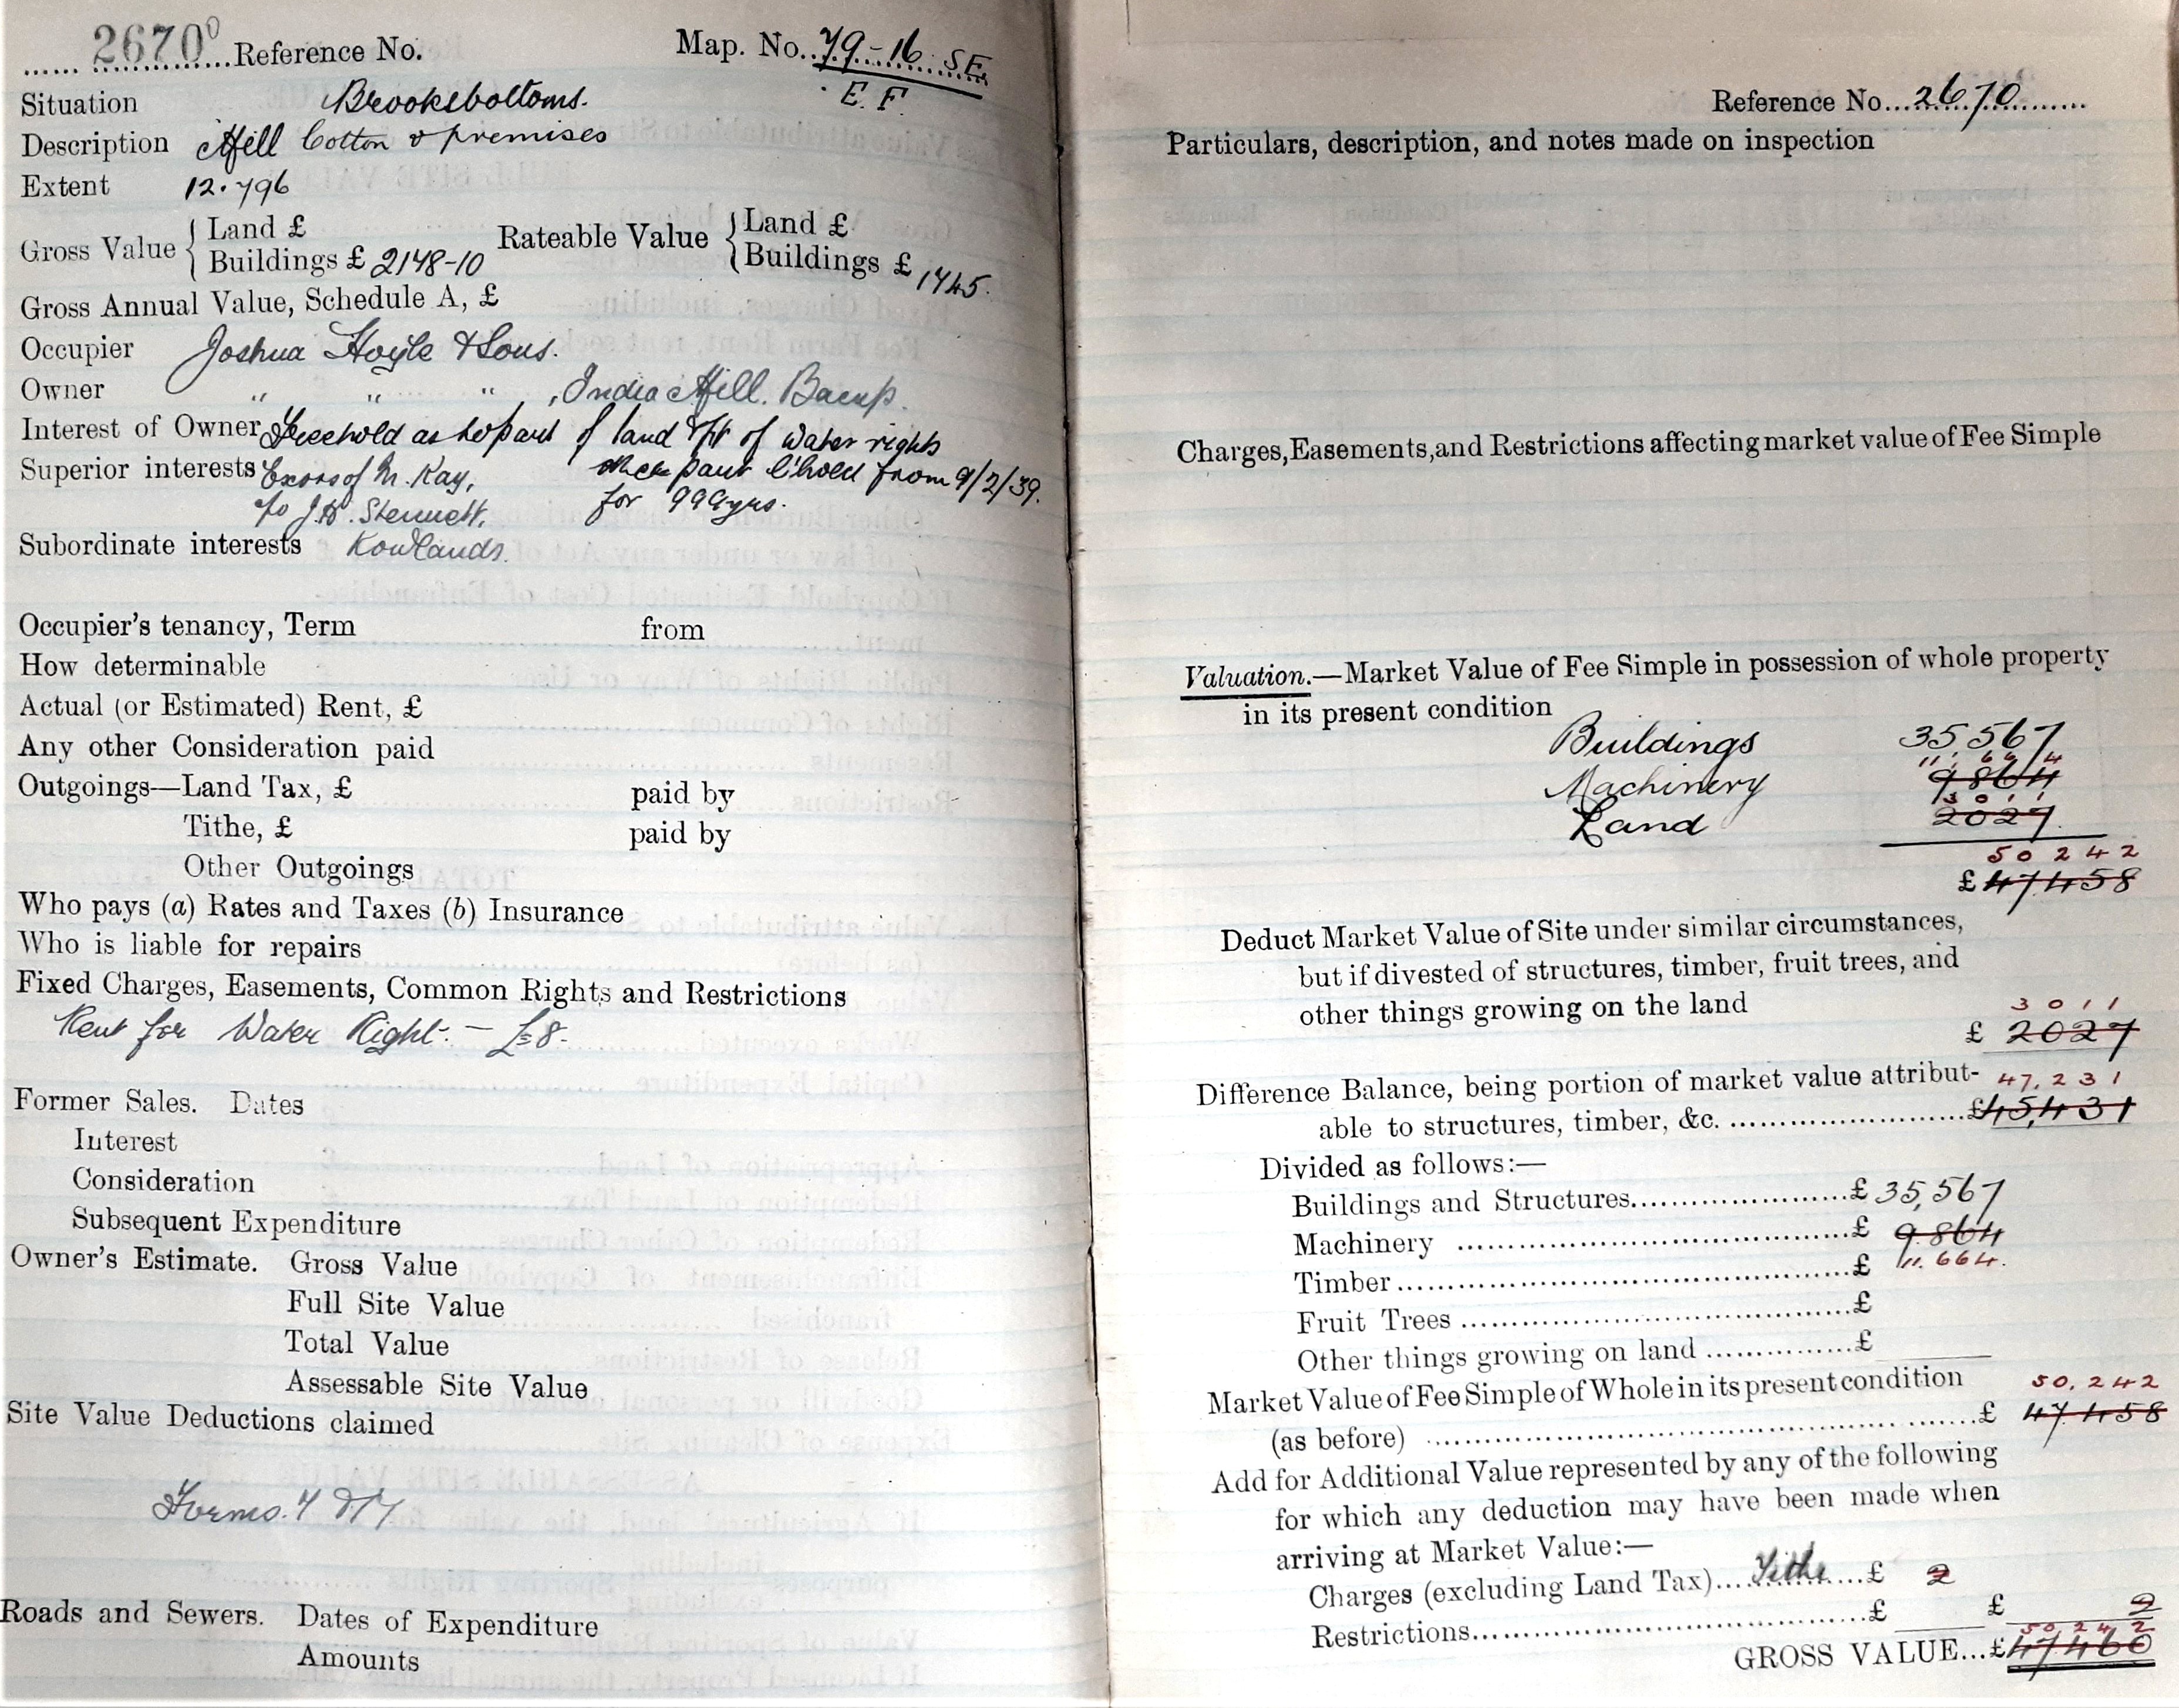 2670 Reference No. Map. No. 79-16 S.E.
E. F.
Situation Brooksbottoms.
Description Mill Cotton & premises
Extent 12.796
Gross Value { Land £ Rateable Value { Land £
Buildings £ 2148-10 Buildings £ 1745.
Gross Annual Value, Schedule A, £
Occupier Joshua Hoyle & Sons.
Owner " " " , India Mill. Bacup.
Interest of Owner Freehold as to part of land & pt of water rights
Superior interests Excors of M. Kay, other part l'hold from 9/2/39.
c/o J.H. Stennett, for 999 yrs.
Subordinate interests Rowlands.
Occupier's tenancy, Term from
How determinable
Actual (or Estimated) Rent, £
Any other Consideration paid
Outgoings—Land Tax, £ paid by
Tithe, £ paid by
Other Outgoings
Who pays (a) Rates and Taxes (b) Insurance
Who is liable for repairs
Fixed Charges, Easements, Common Rights and Restrictions
Rent for Water Right: — £8-
Former Sales. Dates
Interest
Consideration
Subsequent Expenditure
Owner's Estimate. Gross Value
Full Site Value
Total Value
Assessable Site Value
Site Value Deductions claimed
Forms. 4
Roads and Sewers. Dates of Expenditure
Amounts
Reference No. 2670
Particulars, description, and notes made on inspection
Charges, Easements, and Restrictions affecting market value of Fee Simple
Valuation.—Market Value of Fee Simple in possession of whole property
in its present condition
Buildings 35,567
11,664
Machinery 9864
3011
Land 2027
50242
£ 47458
Deduct Market Value of Site under similar circumstances,
but if divested of structures, timber, fruit trees, and
other things growing on the land 3011
£ 2027
Difference Balance, being portion of market value attribut- 47,231
able to structures, timber, &c. £45,431
Divided as follows:—
Buildings and Structures £ 35,567
Machinery £ 9.864
Timber £ 11.664.
Fruit Trees £
Other things growing on land £
Market Value of Fee Simple of Whole in its present condition 50,242
(as before) £ 47458
Add for Additional Value represented by any of the following
for which any deduction may have been made when
arriving at Market Value:—
Charges (excluding Land Tax) Tithe £ 2
Restrictions £ £ 2
50,242
GROSS VALUE...£47460